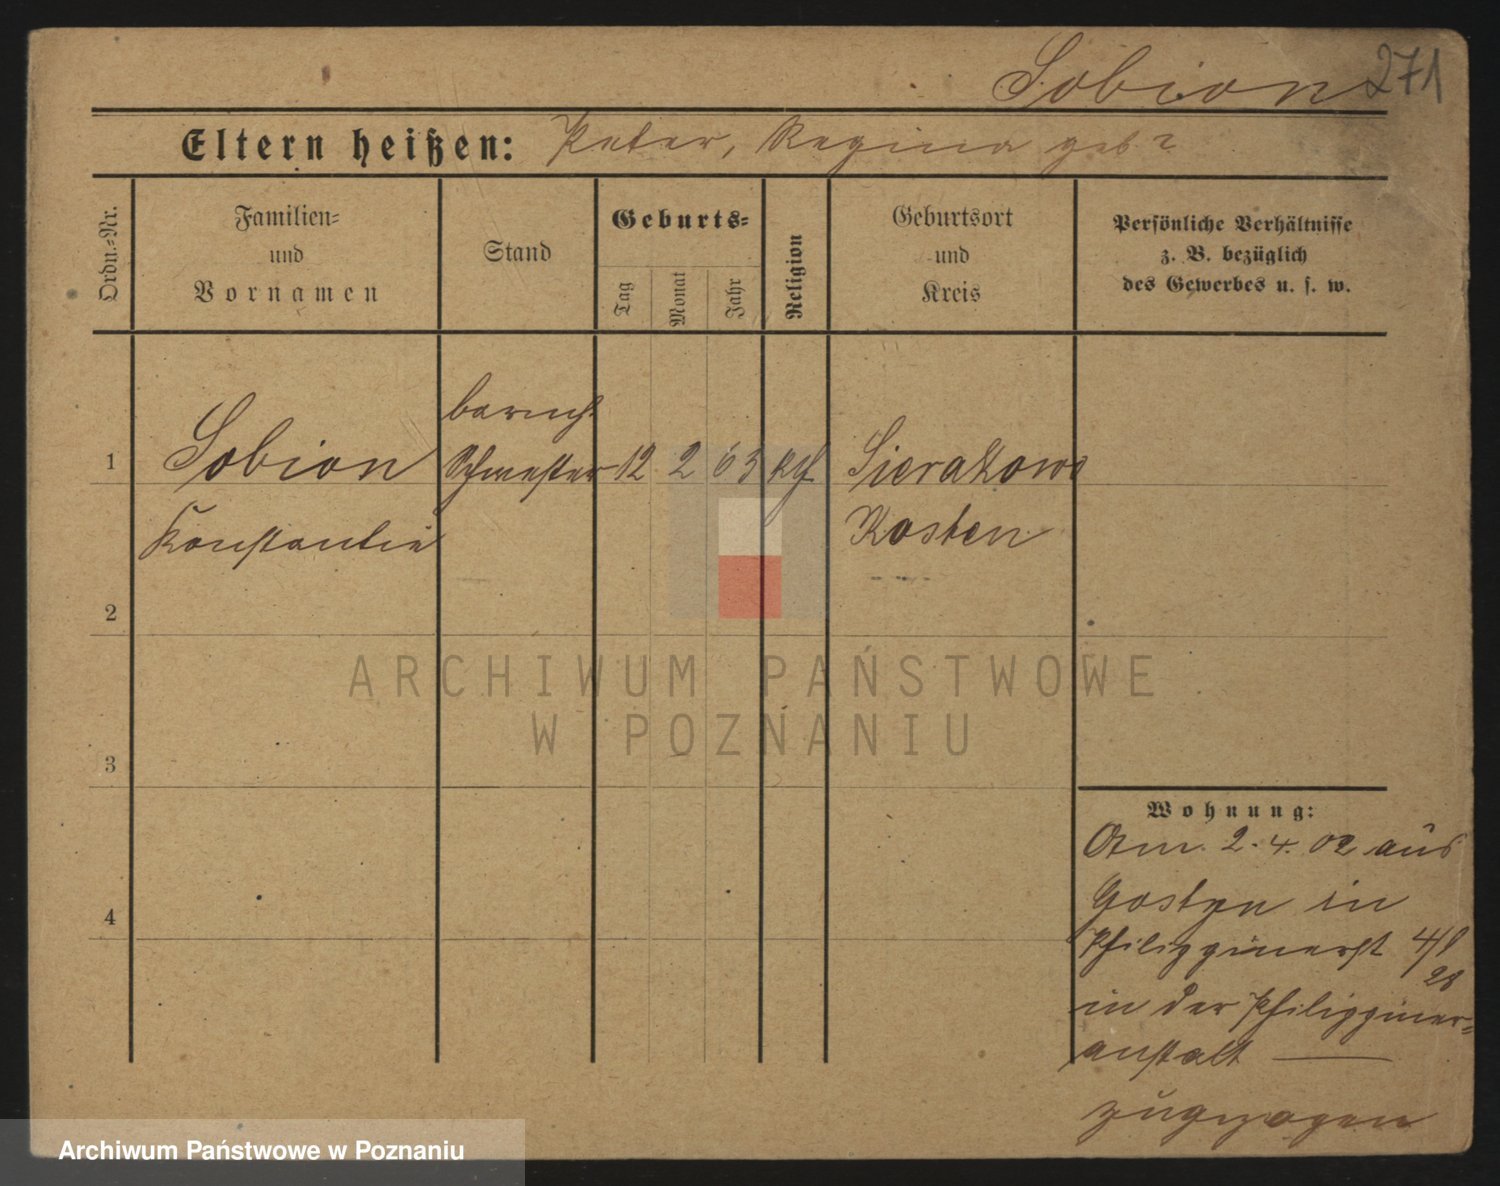 Sobion 271
Eltern heißen: Peter, Regina geb?
Ordn.=Nr.
Familien=
und
Vornamen
Stand
Geburts=
Tag
Monat
Jahr
Religion
Geburtsort
und
Kreis
Persönliche Verhältnisse
z. B. bezüglich
des Gewerbes u. s. w.
barmh.
1 Sobion Schwester 12 2 63 kth Sierakowo
Konstantin Kosten
2
3
4
Wohnung:
Am. 2.4.02 aus
Gostyn in
Philippinerst 4/1
28
in der Philippiner=
anstalt
zugezogen
ARCHIWUM PAŃSTWOWE
W POZNANIU
Archiwum Państwowe w Poznaniu